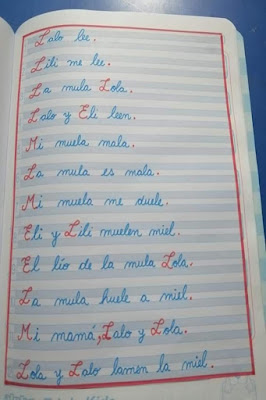 Lalo lee.
Lili me lee.
La mula Lola.
Lalo y Eli leen.
Mi muela mala.
La mula es mala.
Mi muela me duele.
Eli y Lili muelen miel.
El lío de la mula Lola.
La mula huele a miel.
Mi mamá, Lalo y Lola.
Lola y Lalo lamen la miel.